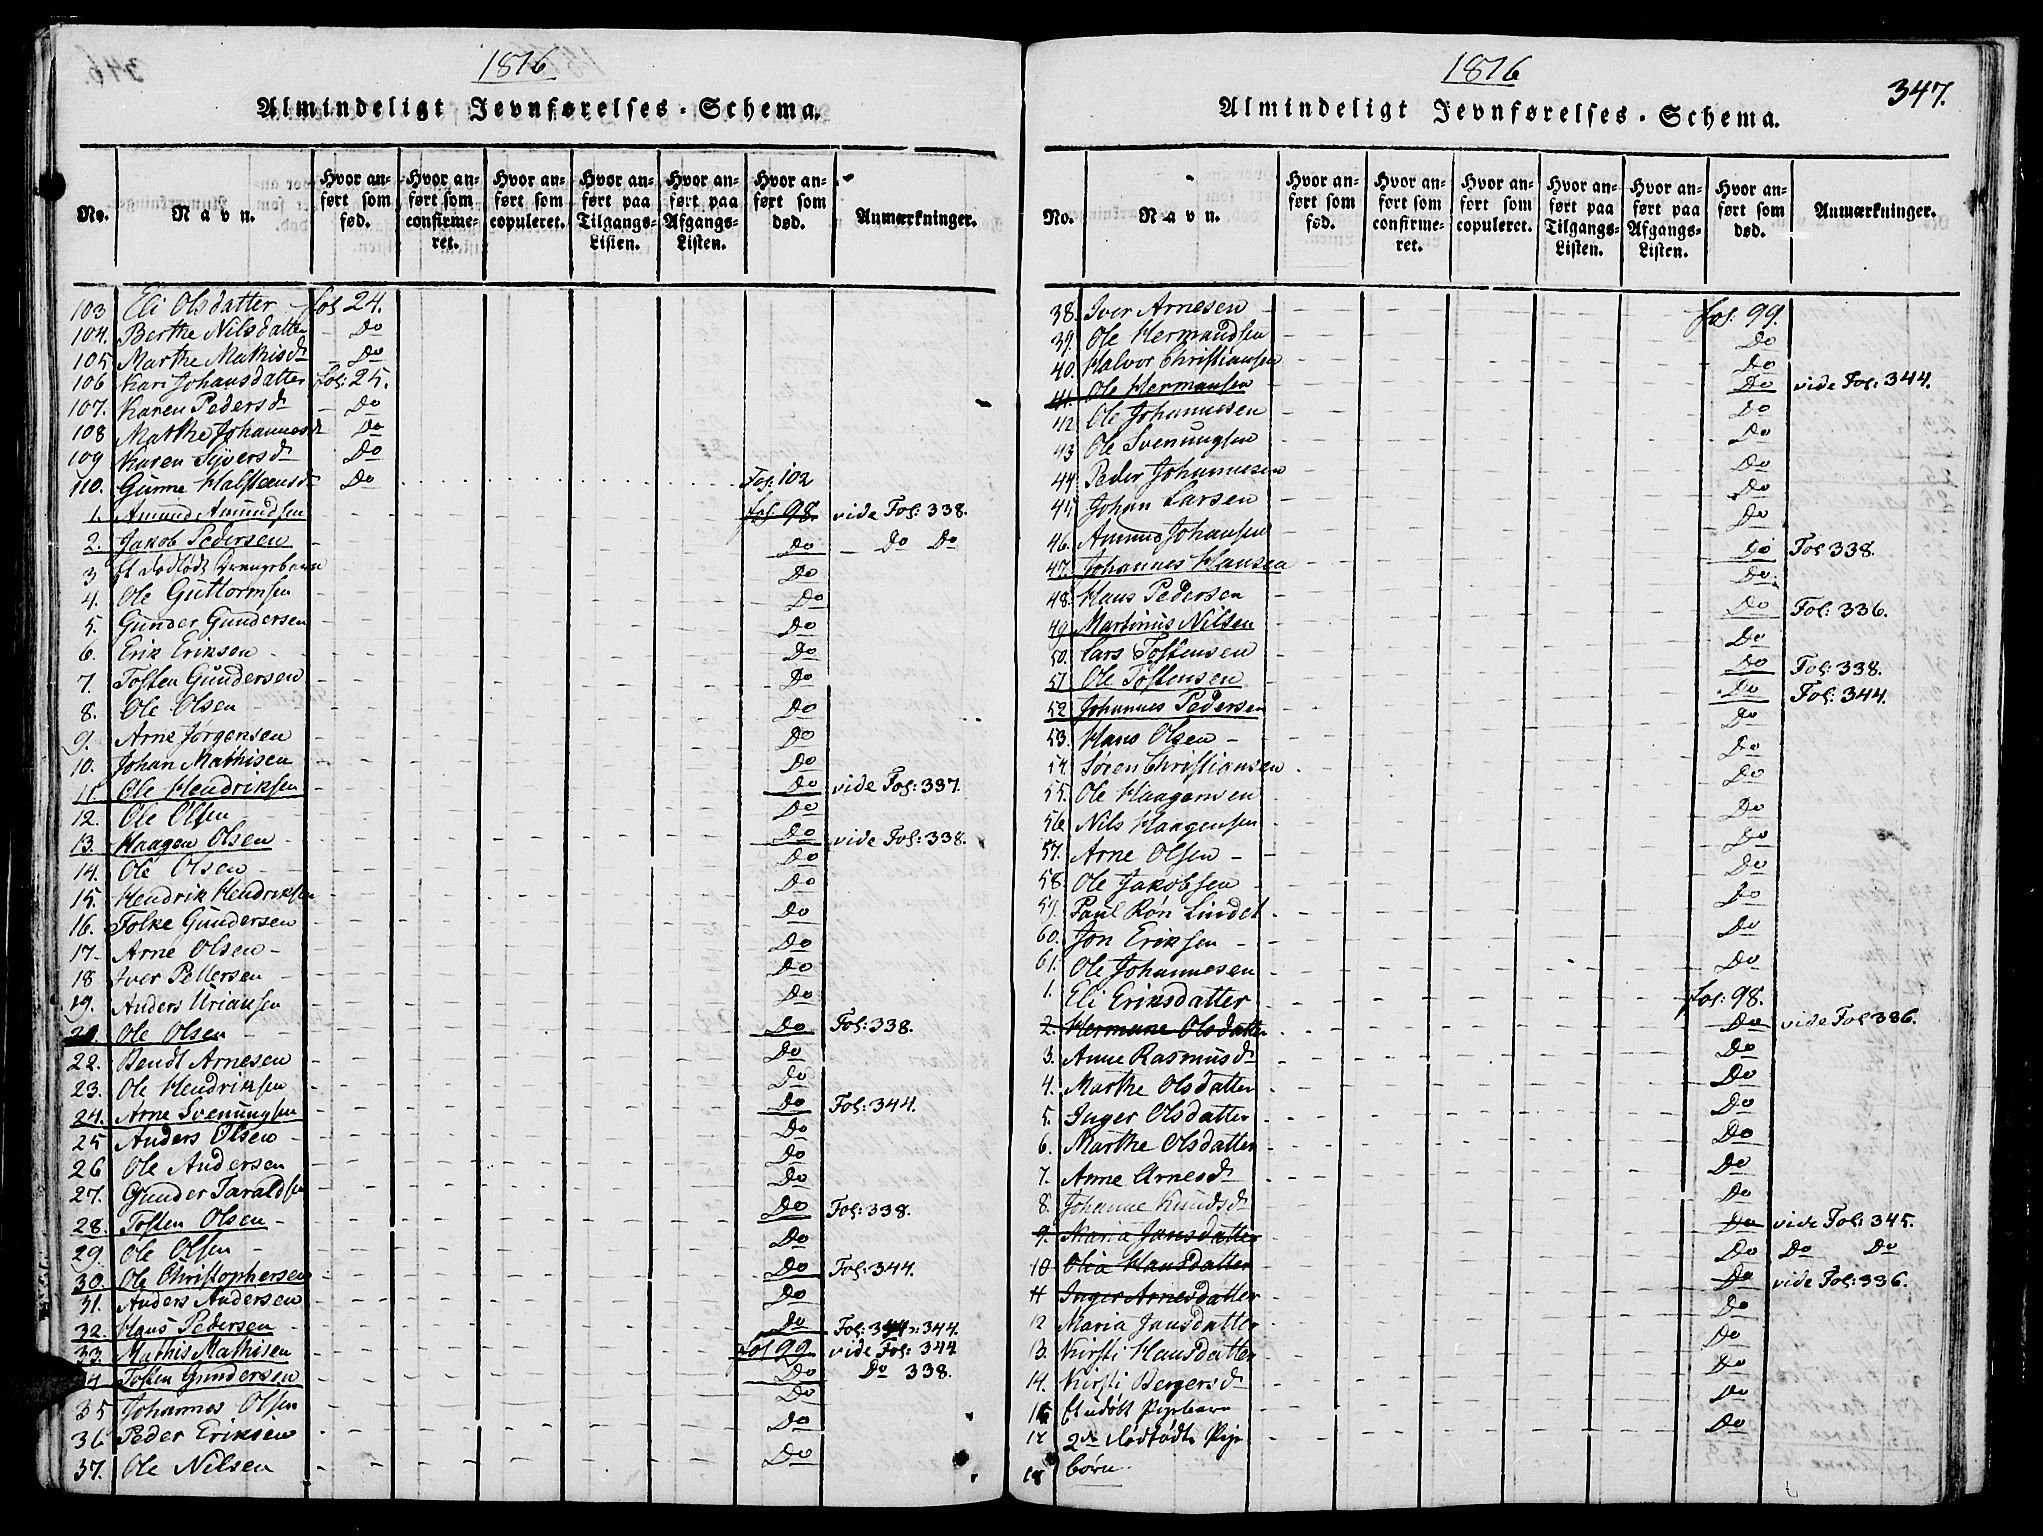 1816
Almindeligt Jevnførelses-Schema.
No. Navn. Hvor anført som fød. Hvor anført som confirmeret. Hvor anført som copuleret. Hvor anført paa Tilgangs-Listen. Hvor anført paa Afgangs-Listen. Hvor anført som død. Anmærkninger.
103 Eli Olsdatter fol 24.
104. Berthe Nilsdatter Do
105 Marthe Mathisd Do
106 Kari Johansdatter fol: 25.
107. Karen Pedersd Do
108 Marthe Johannesd Do
109 Karen Syversd Do
110. Gunne Halstensd Do Fol: 102
1. Amund Amundsen fol: 98. vide Fol: 338.
2. Jakob Pedersen Do Do Do
3 Et dødfødt Drengebarn Do
4. Ole Guttormsen Do
5. Gunder Gundersen Do
6. Erik Eriksen Do
7. Tosten Gundersen Do
8. Ole Olsen Do
9. Arne Jørgensen Do
10. Johan Mathisen Do
11. Ole Hendriksen Do vide Fol: 337.
12. Ole Olsen Do
13. Haagen Olsen Do vide Fol: 338.
14. Ole Olsen Do
15. Hendrik Hendriksen Do
16. Folke Gundersen Do
17. Arne Olsen Do
18 Iver Pettersen Do
19. Anders Uriansen Do
Ole Olsen Do Fol: 338.
22. Bendt Arnesen Do
23. Ole Hendriksen Do
24. Arne Svenungsen Do Fol: 344.
25 Anders Olsen Do
26 Ole Andersen Do
27. Gunder Taraldsen Do
28. Tosten Olsen Do Fol: 338.
29. Ole Olsen Do
30. Ole Christophersen Do Fol: 344.
31. Anders Andersen Do
32. Hans Pedersen Do Fol: 344.
33. Mathis Mathisen Fol 99 vide Fol: 344
Tosten Gundersen Do Do 338.
35 Johannes Olsen Do
36 Peder Eriksen Do
37. Ole Nilsen Do
1816
347.
Almindeligt Jevnførelses-Schema.
No. Navn. Hvor anført som fød. Hvor anført som confirmeret. Hvor anført som copuleret. Hvor anført paa Tilgangs-Listen. Hvor anført paa Afgangs-Listen. Hvor anført som død. Anmærkninger.
38. Iver Arnesen fol: 99.
39. Ole Hermandsen Do
40. Halvor Christiansen Do
41. Ole Hermansen Do vide Fol: 344.
42 Ole Johannesen Do
43 Ole Svenungsen Do
44 Peder Johannesen Do
45 Johan Larsen Do
46. Amund Johansen Do
47. Johannes Hansen Do Fol 338.
48. Hans Pedersen Do
49 Martinus Nilsen Do Fol: 336.
50. Lars Tostensen Do
51 Ole Tostensen Do Fol: 338.
52 Johannes Pedersen Do Fol: 344.
53. Hans Olsen Do
54. Søren Christiansen Do
55. Ole Haagensen Do
56 Nils Haagensen Do
57. Arne Olsen Do
58. Ole Jakobsen Do
59. Paul Røn Lindet Do
60. Jon Eriksen Do
61. Ole Johannesen Do
1. Eli Eriksdatter fol: 98.
2. Hermane Olsdatter Do vide Fol 336.
3. Anne Rasmusd Do
4. Marthe Olsdatter Do
5. Inger Olsdatter Do
6. Marthe Olsdatter Do
7. Anne Arnesd Do
8. Johanne Knudsd Do
9. Maria Jansdatter Do vide Fol: 345.
10 Olia Hansdatter Do Do Do
11 Inger Arnesdatter Do vide Fol: 336.
12 Maria Jansdatter Do
13. Kirsti Hansdatter Do
14. Kirsti Bergersd Do
Et udøbt Pigebarn Do
17 2de dødfødte Pige Do
18 børn